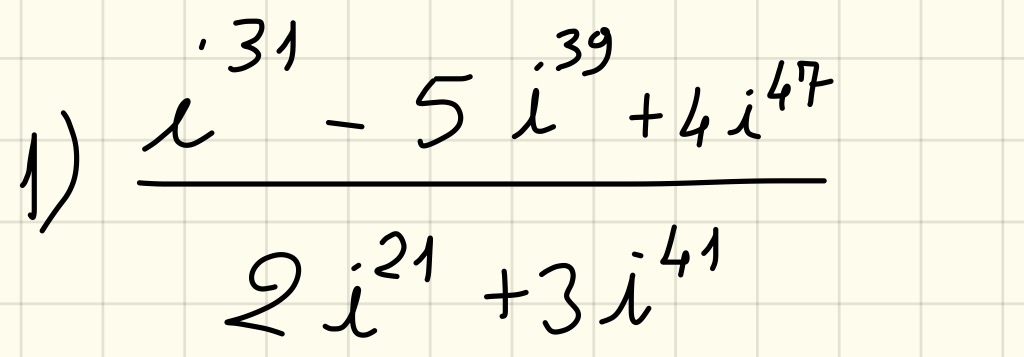 1) i^31 - 5 i^39 + 4 i^47
2 i^21 + 3 i^41